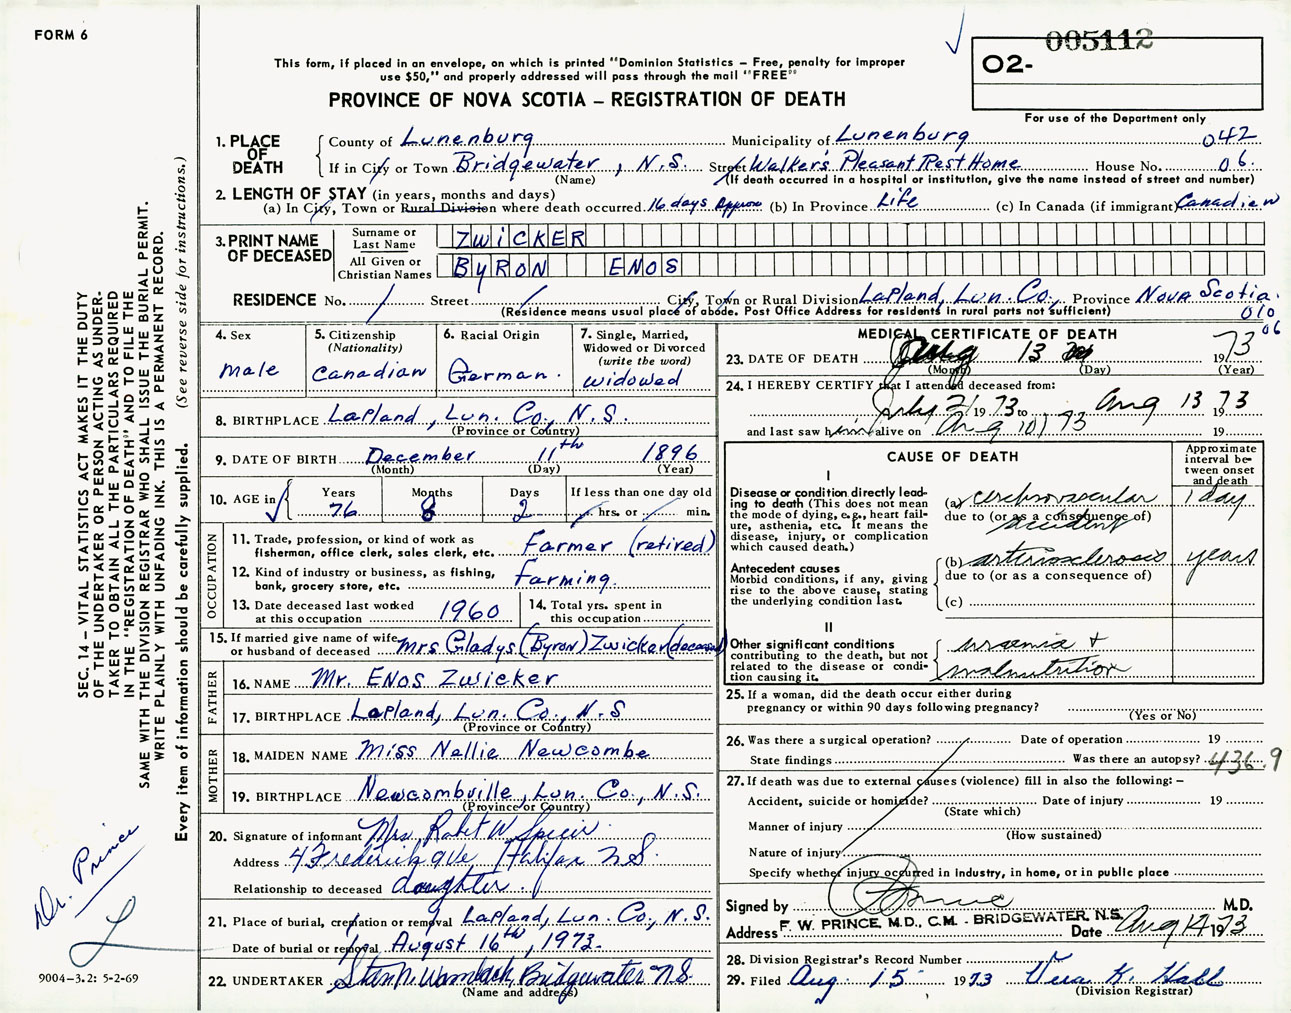 FORM 6
005112
O2-
For use of the Department only
This form, if placed in an envelope, on which is printed "Dominion Statistics – Free, penalty for improper
use $50," and properly addressed will pass through the mail "FREE"
PROVINCE OF NOVA SCOTIA – REGISTRATION OF DEATH
SEC. 14 – VITAL STATISTICS ACT MAKES IT THE DUTY
OF THE UNDERTAKER OR PERSON ACTING AS UNDER-
TAKER TO OBTAIN ALL THE PARTICULARS REQUIRED
IN THE "REGISTRATION OF DEATH" AND TO FILE THE
SAME WITH THE DIVISION REGISTRAR WHO SHALL ISSUE THE BURIAL PERMIT.
WRITE PLAINLY WITH UNFADING INK. THIS IS A PERMANENT RECORD.
Every item of information should be carefully supplied. (See reverse side for instructions.)
1. PLACE OF DEATH
County of Lunenburg Municipality of Lunenburg 042
If in City or Town Bridgewater, N.S. Street Walker's Pleasant Rest Home House No. 06.
(Name) (If death occurred in a hospital or institution, give the name instead of street and number)
2. LENGTH OF STAY (in years, months and days)
(a) In City, Town or Rural Division where death occurred 16 days Approx (b) In Province Life (c) In Canada (if immigrant) Canadian
3. PRINT NAME OF DECEASED
Surname or Last Name ZWICKER
All Given or Christian Names BYRON ENOS
RESIDENCE No. / Street / City, Town or Rural Division Lapland, Lun. Co., Province Nova Scotia.
(Residence means usual place of abode. Post Office Address for residents in rural parts not sufficient) 010
06
4. Sex
Male
5. Citizenship
(Nationality)
Canadian
6. Racial Origin
German.
7. Single, Married,
Widowed or Divorced
(write the word)
Widowed
8. BIRTHPLACE Lapland, Lun. Co., N.S.
(Province or Country)
9. DATE OF BIRTH December 11th 1896
(Month) (Day) (Year)
10. AGE in
Years 76
Months 8
Days 2
If less than one day old
hrs. or min.
OCCUPATION
11. Trade, profession, or kind of work as
fisherman, office clerk, sales clerk, etc. Farmer (retired)
12. Kind of industry or business, as fishing,
bank, grocery store, etc. Farming.
13. Date deceased last worked
at this occupation 1960
14. Total yrs. spent in
this occupation
15. If married give name of wife
or husband of deceased Mrs Gladys (Byron) Zwicker (deceased)
FATHER
16. NAME Mr. Enos Zwicker
17. BIRTHPLACE Lapland, Lun. Co., N.S
(Province or Country)
MOTHER
18. MAIDEN NAME Miss Nellie Newcombe
19. BIRTHPLACE Newcombville, Lun. Co., N.S.
(Province or Country)
20. Signature of informant Mrs. Robt W.
Address 43 Frederick ave, Halifax N.S.
Relationship to deceased daughter.
21. Place of burial, cremation or removal Lapland, Lun. Co., N.S.
Date of burial or removal August 16th, 1973.
22. UNDERTAKER Bridgewater N.S.
(Name and address)
MEDICAL CERTIFICATE OF DEATH
23. DATE OF DEATH Aug 13 1973
(Month) (Day) (Year)
24. I HEREBY CERTIFY that I attended deceased from:
July 21 1973 to Aug 13 1973
and last saw him alive on Aug 10) 73 19
CAUSE OF DEATH
Approximate
interval be-
tween onset
and death
I
Disease or condition directly lead-
ing to death (This does not mean
the mode of dying, e.g., heart fail-
ure, asthenia, etc. It means the
disease, injury, or complication
which caused death.)
(a) cerebrovascular accident 1 day
due to (or as a consequence of)
Antecedent causes
Morbid conditions, if any, giving
rise to the above cause, stating
the underlying condition last.
(b) arteriosclerosis years
due to (or as a consequence of)
(c)
II
Other significant conditions
contributing to the death, but not
related to the disease or condi-
tion causing it.
uraemia +
malnutrition
25. If a woman, did the death occur either during
pregnancy or within 90 days following pregnancy?
(Yes or No)
26. Was there a surgical operation? Date of operation 19
State findings Was there an autopsy? 436.9
27. If death was due to external causes (violence) fill in also the following: –
Accident, suicide or homicide? Date of injury 19
(State which)
Manner of injury
(How sustained)
Nature of injury
Specify whether injury occurred in industry, in home, or in public place
Signed by Prince M.D.
Address F. W. PRINCE, M.D., C.M. - BRIDGEWATER, N.S. Date Aug 14 1973
28. Division Registrar's Record Number
29. Filed Aug. 15 1973 Vera K. Hall
(Division Registrar)
Dr. Prince
L
9004–3.2: 5-2-69